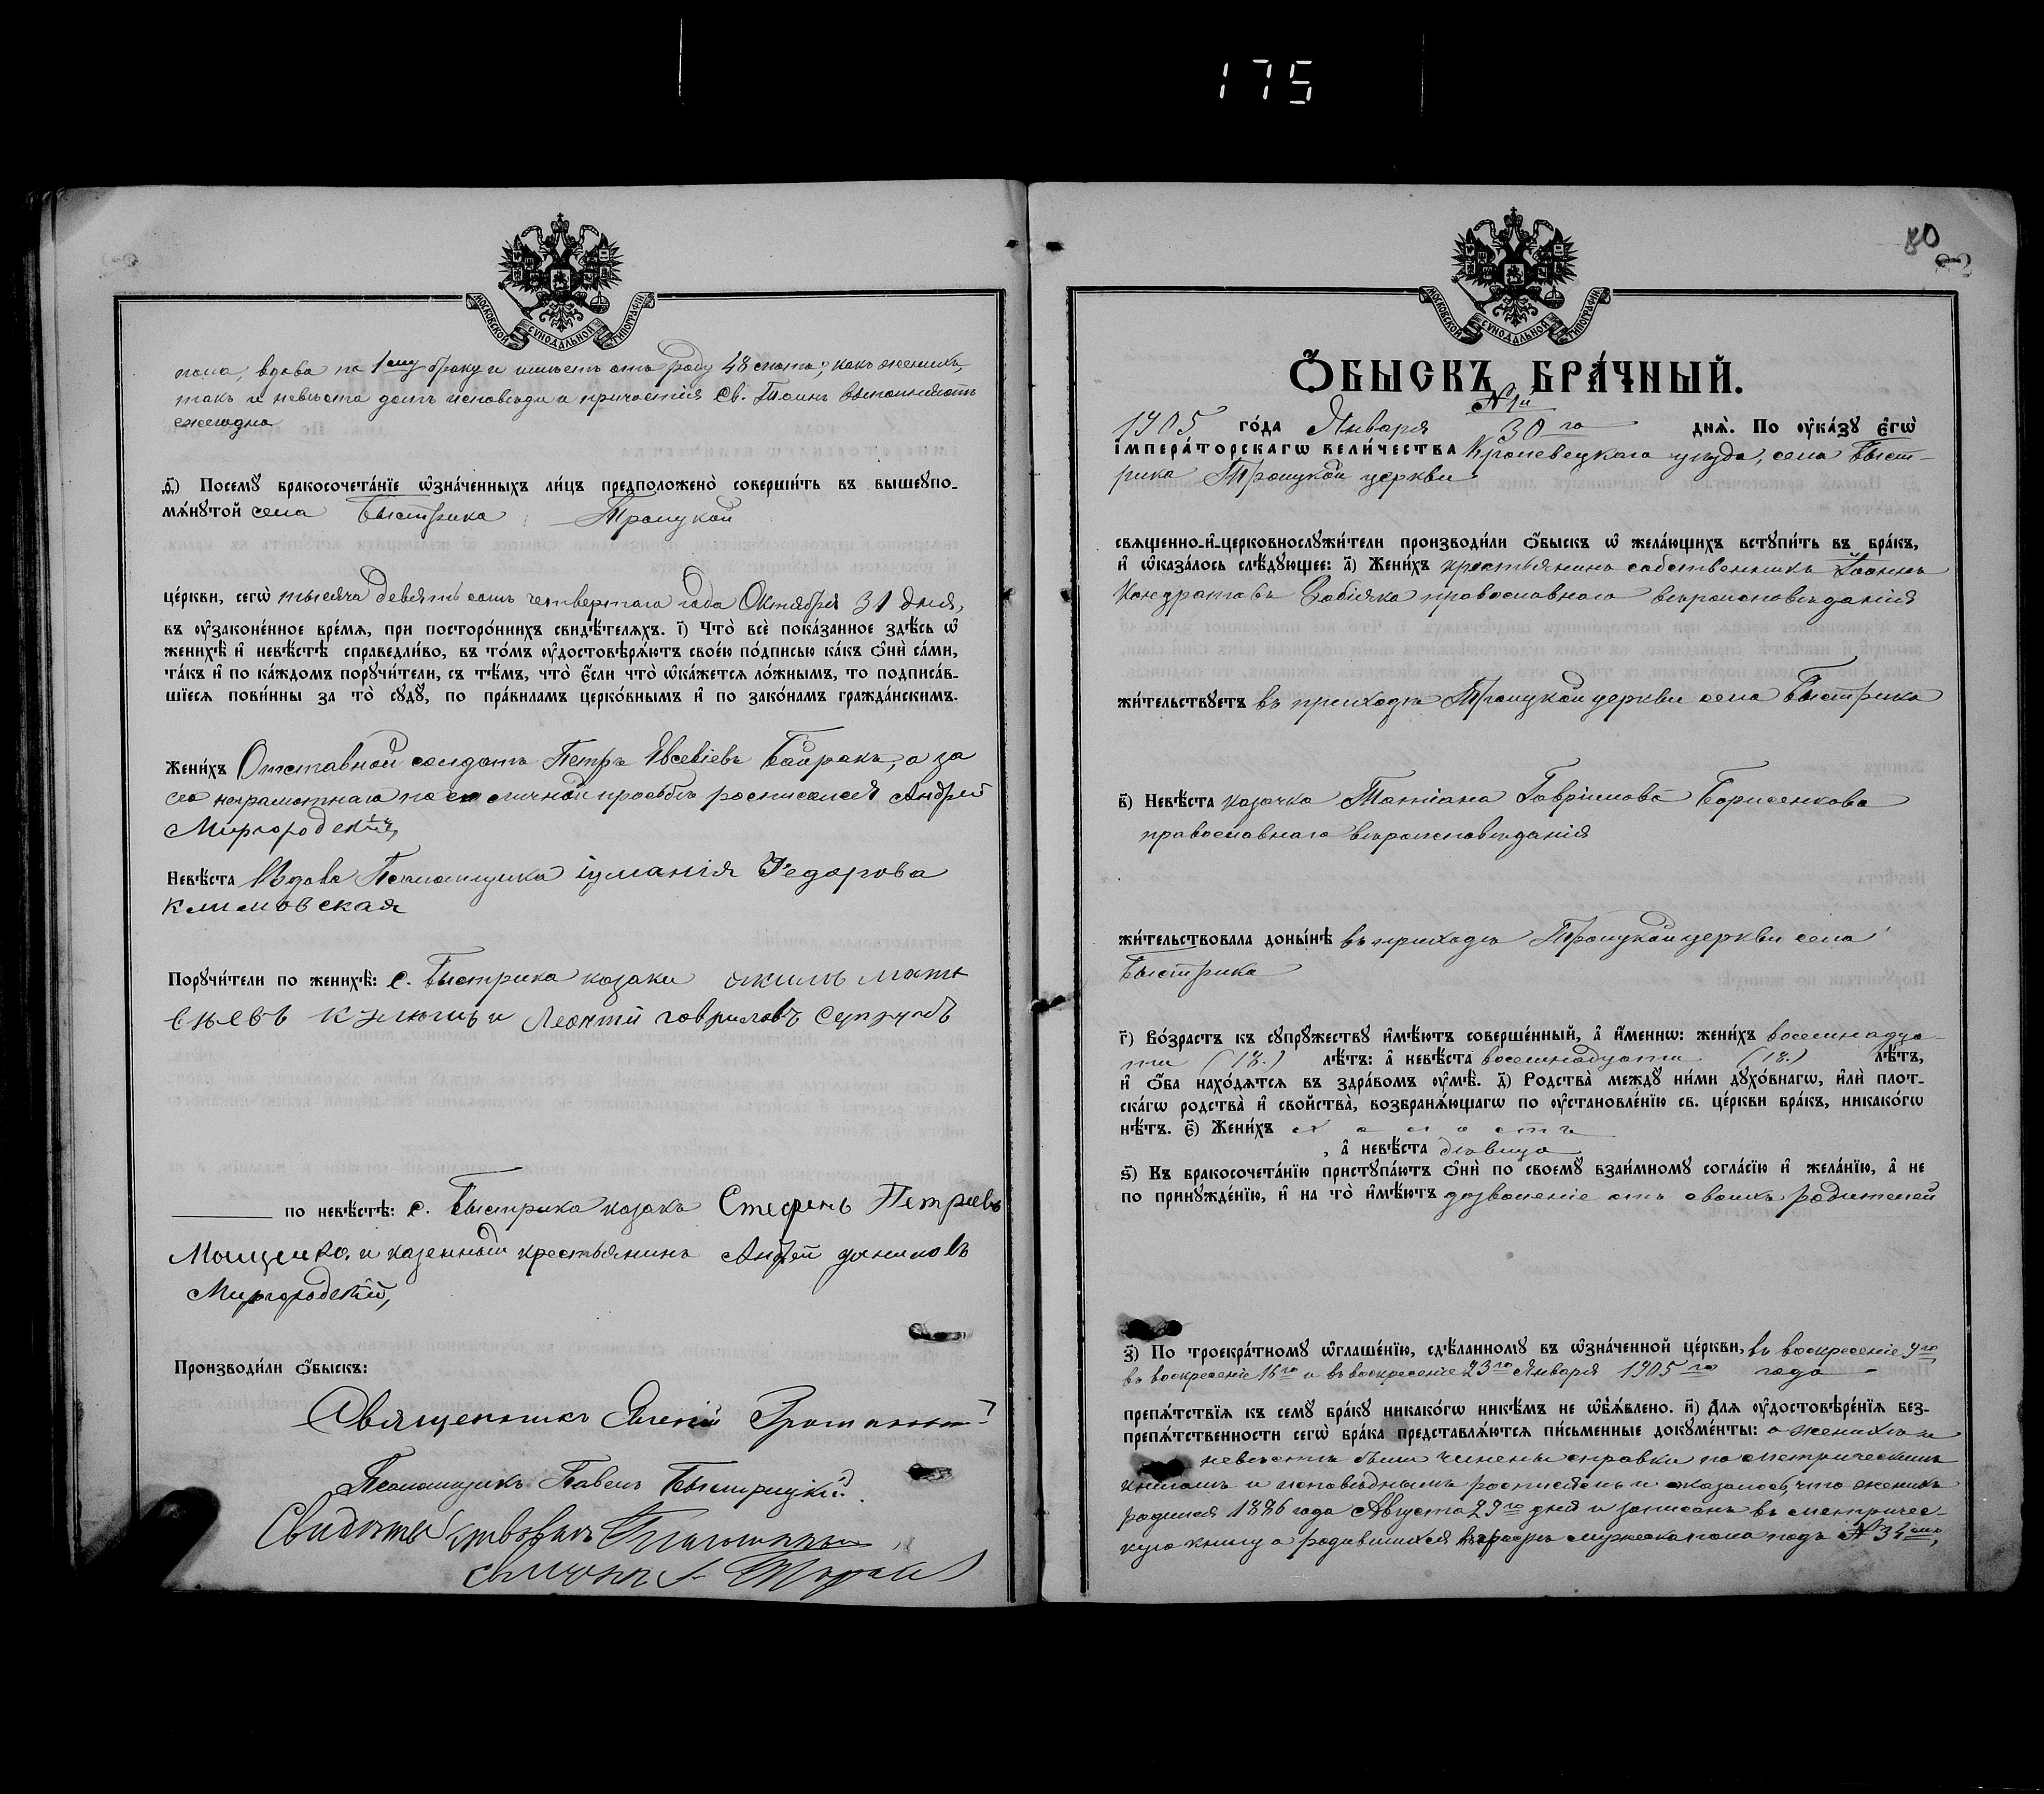 175
МОСКОВСКОЙ СѴНОДАЛЬНОЙ ТИПОГРАФІИ.
пола, вдова по 1му браку и имѣетъ отъ роду 48 лѣтъ; какъ женихъ,
такъ и невѣста долгъ исповѣди и причастія Св. Таинъ выполняютъ
ежегодно
д҃) Посемꙋ бракосочета́нїе ѡ҆зна́ченныхъ ли́цъ предположено̀ соверши́ть въ вышеꙋпо-
мѧ́нꙋтой села Быстрика Троицкой
це́ркви, сегѡ̀ тысяча девятьсотъ четвертаго года Октября 31 дня,
въ ᲂу҆законе́нное вре́мѧ, при посторо́ннихъ свидѣ́телѧхъ. і҃) Что̀ всѐ пока́занное здѣ́сь ѡ҆
женихѣ̀ и҆ невѣ́стѣ справедли́во, въ то́мъ ᲂу҆достовѣрѧ́ютъ свое́ю по́дписью ка́къ ѻ҆нѝ са́ми,
та́къ и҆ по ка́ждомъ порꙋчи́тели, съ тѣ́мъ, что̀ є҆́сли что̀ ѡ҆ка́жетсѧ ло́жнымъ, то подписа́в-
шїесѧ пови́нны за то̀ сꙋдꙋ̀, по пра́виламъ церко́внымъ и҆ по зако́намъ гражда́нскимъ.
Жени́хъ Отставной солдатъ Петръ Евсевіевъ Байракъ, а за
его неграмотнаго по его личной просьбѣ росписался Андрей
Миргородскій,
Невѣ́ста Вдова Псаломщика Федорова
Климовская
Порꙋчи́тели по женихѣ̀: с. Быстрика казаки Матв
ѣевъ и Леонтій Гавриловъ Супрунъ
по невѣ́стѣ: с. Быстрика казакъ Стефенъ Петровъ
Мощенко и казенный крестьянинъ Андрей Даниловъ
Миргородскій,
Производи́ли ѻ҆́быскъ:
Священникъ Евгеній
Псаломщикъ Павелъ Быстрицкій.
80
82
МОСКОВСКОЙ СѴНОДАЛЬНОЙ ТИПОГРАФІИ.
Ѻ҆́БЫСКЪ БРА́ЧНЫЙ.
№ 1й
1905 го́да Января 30го днѧ̀. По ᲂу҆ка́зꙋ є҆гѡ̀
і҆мпера́торскагѡ вели́чества Кролевецкаго уѣзда, села Быст-
рика Троицкой церкви
свѧщенно-и҆-церковнослꙋжи́тели производи́ли ѻ҆́быскъ ѡ҆ жела́ющихъ встꙋпи́ть въ бра́къ,
и҆ ѡ҆каза́лось слѣ́дꙋющее: а҃) Жени́хъ крестьянинъ собственникъ Іоаннъ
Кондратовъ Забіяка православнаго вѣроисповѣданія
жи́тельствꙋетъ въ приходѣ Троицкой церкви села Быстрика
в҃) Невѣ́ста казачка Татіана Гавріилова Борисенкова
православнаго вѣроисповѣданія
жи́тельствовала доны́нѣ въ приходѣ Троицкой церкви села
Быстрика
г҃) Во́зрастъ къ сꙋпрꙋ́жествꙋ и҆мѣ́ютъ соверше́нный, а҆ и҆́меннѡ: жени́хъ восемнадца-
ти (18.) лѣ́тъ: а҆ невѣ́ста восемнадцати (18.) лѣ́тъ,
и҆ ѻ҆́ба нахо́дѧтсѧ въ здра́вомъ ᲂу҆мѣ̀. д҃) Родства̀ междꙋ̀ ни́ми дꙋхо́внагѡ, и҆лѝ плот-
ска́гѡ родства̀ и҆ свойства̀, возбранѧ́ющагѡ по ᲂу҆становле́нїю св. це́ркви бра́къ, никако́гѡ
нѣ́тъ. є҃) Жени́хъ холостъ
, а҆ невѣ́ста дѣвица
ѕ҃) Къ бракосочета́нїю пристꙋпа́ютъ ѻ҆нѝ по своемꙋ̀ взаи́мномꙋ согла́сїю и҆ жела́нїю, а҆ не
по принꙋжде́нїю, и҆ на то̀ и҆мѣ́ютъ дозволеніе отъ своихъ родителей
з҃) По троекра́тномꙋ ѡ҆глаше́нїю, сдѣ́ланномꙋ въ ѡ҆зна́ченной це́ркви, въ воскресеніе 9го
въ воскресеніе 16го и въ воскресеніе 23го Января 1905го года
препѧ́тствїѧ къ семꙋ̀ бра́кꙋ никако́гѡ никѣ́мъ не ѡ҆б̾ѧ́влено. и҃) Длѧ ᲂу҆достовѣре́нїѧ без-
препѧ́тственности сегѡ̀ бра́ка представлѧ́ютсѧ пи́сьменные докꙋме́нты: о женихѣ и
невѣстѣ были чинены справки по метрическимъ
книгамъ и исповѣднымъ росписямъ и оказалось, что женихъ
родился 1886 года Августа 29го дня и записанъ въ метричес-
кую книгу о родившихся мужеска пола подъ №